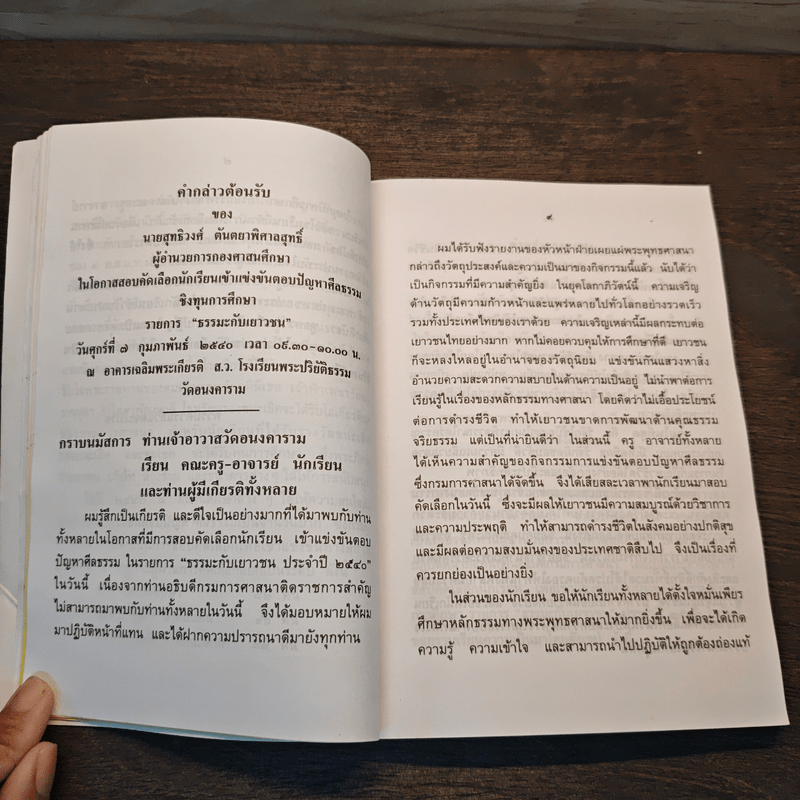 คำกล่าวต้อนรับ
ของ
นายสุทธิวงศ์ ตันตยาพิศาลสุทธิ์
ผู้อำนวยการกองศาสนศึกษา
ในโอกาสสอบคัดเลือกนักเรียนเข้าแข่งขันตอบปัญหาศีลธรรม
ชิงทุนการศึกษา
รายการ “ธรรมะกับเยาวชน”
วันศุกร์ที่ ๗ กุมภาพันธ์ ๒๕๔๐ เวลา ๐๙.๓๐-๑๐.๐๐ น.
ณ อาคารเฉลิมพระเกียรติ ส.ว. โรงเรียนพระปริยัติธรรม
วัดอนงคาราม
กราบนมัสการ ท่านเจ้าอาวาสวัดอนงคาราม
เรียน คณะครู-อาจารย์ นักเรียน
และท่านผู้มีเกียรติทั้งหลาย
ผมรู้สึกเป็นเกียรติ และดีใจเป็นอย่างมากที่ได้มาพบกับท่าน
ทั้งหลายในโอกาสที่มีการสอบคัดเลือกนักเรียน เข้าแข่งขันตอบ
ปัญหาศีลธรรม ในรายการ “ธรรมะกับเยาวชน ประจำปี ๒๕๔๐”
ในวันนี้ เนื่องจากท่านอธิบดีกรมการศาสนาติดราชการสำคัญ
ไม่สามารถมาพบกับท่านทั้งหลายในวันนี้ จึงได้มอบหมายให้ผม
มาปฏิบัติหน้าที่แทน และได้ฝากความปรารถนาดีมายังทุกท่าน
๙
ผมได้รับฟังรายงานของหัวหน้าฝ่ายเผยแผ่พระพุทธศาสนา
กล่าวถึงวัตถุประสงค์และความเป็นมาของกิจกรรมนี้แล้ว นับได้ว่า
เป็นกิจกรรมที่มีความสำคัญยิ่ง ในยุคโลกาภิวัตน์นี้ ความเจริญ
ด้านวัตถุมีความก้าวหน้าและแพร่หลายไปทั่วโลกอย่างรวดเร็ว
รวมทั้งประเทศไทยของเราด้วย ความเจริญเหล่านี้มีผลกระทบต่อ
เยาวชนไทยอย่างมาก หากไม่คอยควบคุมให้การศึกษาที่ดี เยาวชน
ก็จะหลงใหลอยู่ในอำนาจของวัตถุนิยม แข่งขันกันแสวงหาสิ่ง
อำนวยความสะดวกความสบายในด้านความเป็นอยู่ ไม่นำพาต่อการ
เรียนรู้ในเรื่องของหลักธรรมทางศาสนา โดยคิดว่าไม่เอื้อประโยชน์
ต่อการดำรงชีวิต ทำให้เยาวชนขาดการพัฒนาด้านคุณธรรม
จริยธรรม แต่เป็นที่น่ายินดีว่า ในส่วนนี้ ครู อาจารย์ทั้งหลาย
ได้เห็นความสำคัญของกิจกรรมการแข่งขันตอบปัญหาศีลธรรม
ซึ่งกรมการศาสนาได้จัดขึ้น จึงได้เสียสละเวลาพานักเรียนมาสอบ
คัดเลือกในวันนี้ ซึ่งจะมีผลให้เยาวชนมีความสมบูรณ์ด้วยวิชาการ
และความประพฤติ ทำให้สามารถดำรงชีวิตในสังคมอย่างปกติสุข
และมีผลต่อความสงบมั่นคงของประเทศชาติสืบไป จึงเป็นเรื่องที่
ควรยกย่องเป็นอย่างยิ่ง
ในส่วนของนักเรียน ขอให้นักเรียนทั้งหลายได้ตั้งใจหมั่นเพียร
ศึกษาหลักธรรมทางพระพุทธศาสนาให้มากยิ่งขึ้น เพื่อจะได้เกิด
ความรู้ ความเข้าใจ และสามารถนำไปปฏิบัติให้ถูกต้องถ่องแท้